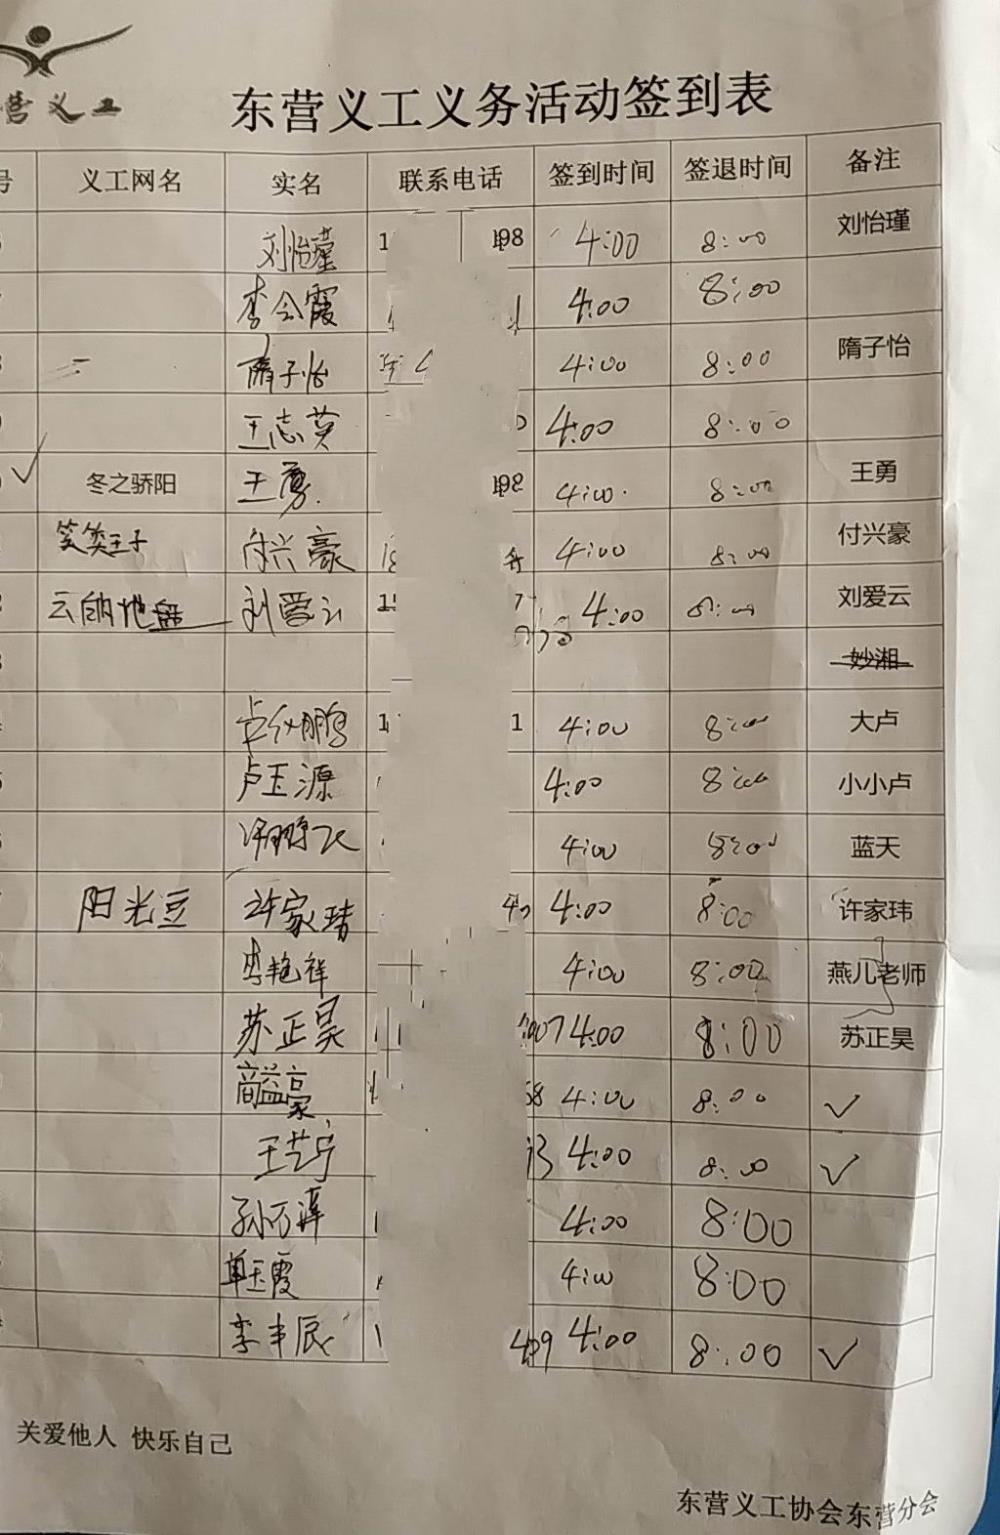 营义工
东营义工义务活动签到表
号 义工网名 实名 联系电话 签到时间 签退时间 备注
刘怡瑾 1 198 4:00 8:00 刘怡瑾
李会霞 4:00 8:00
隋子怡 4:00 8:00 隋子怡
王志英 4:00 8:00
冬之骄阳 王勇 198 4:00 8:00 王勇
笑笑王子 付兴豪 4:00 8:00 付兴豪
云的地盘 刘爱云 4:00 8:00 刘爱云
妙湘
1 1 4:00 8:00 大卢
卢玉源 4:00 8:00 小小卢
4:00 8:00 蓝天
阳光豆 许家玮 4:00 8:00 许家玮
李艳祥 4:00 8:00 燕儿老师
苏正昊 007 4:00 8:00 苏正昊
商益豪 68 4:00 8:00 ✓
王艺宁 4:00 8:00 ✓
4:00 8:00
单玉霞 4:00 8:00
李丰辰 1 409 4:00 8:00 ✓
关爱他人 快乐自己
东营义工协会东营分会